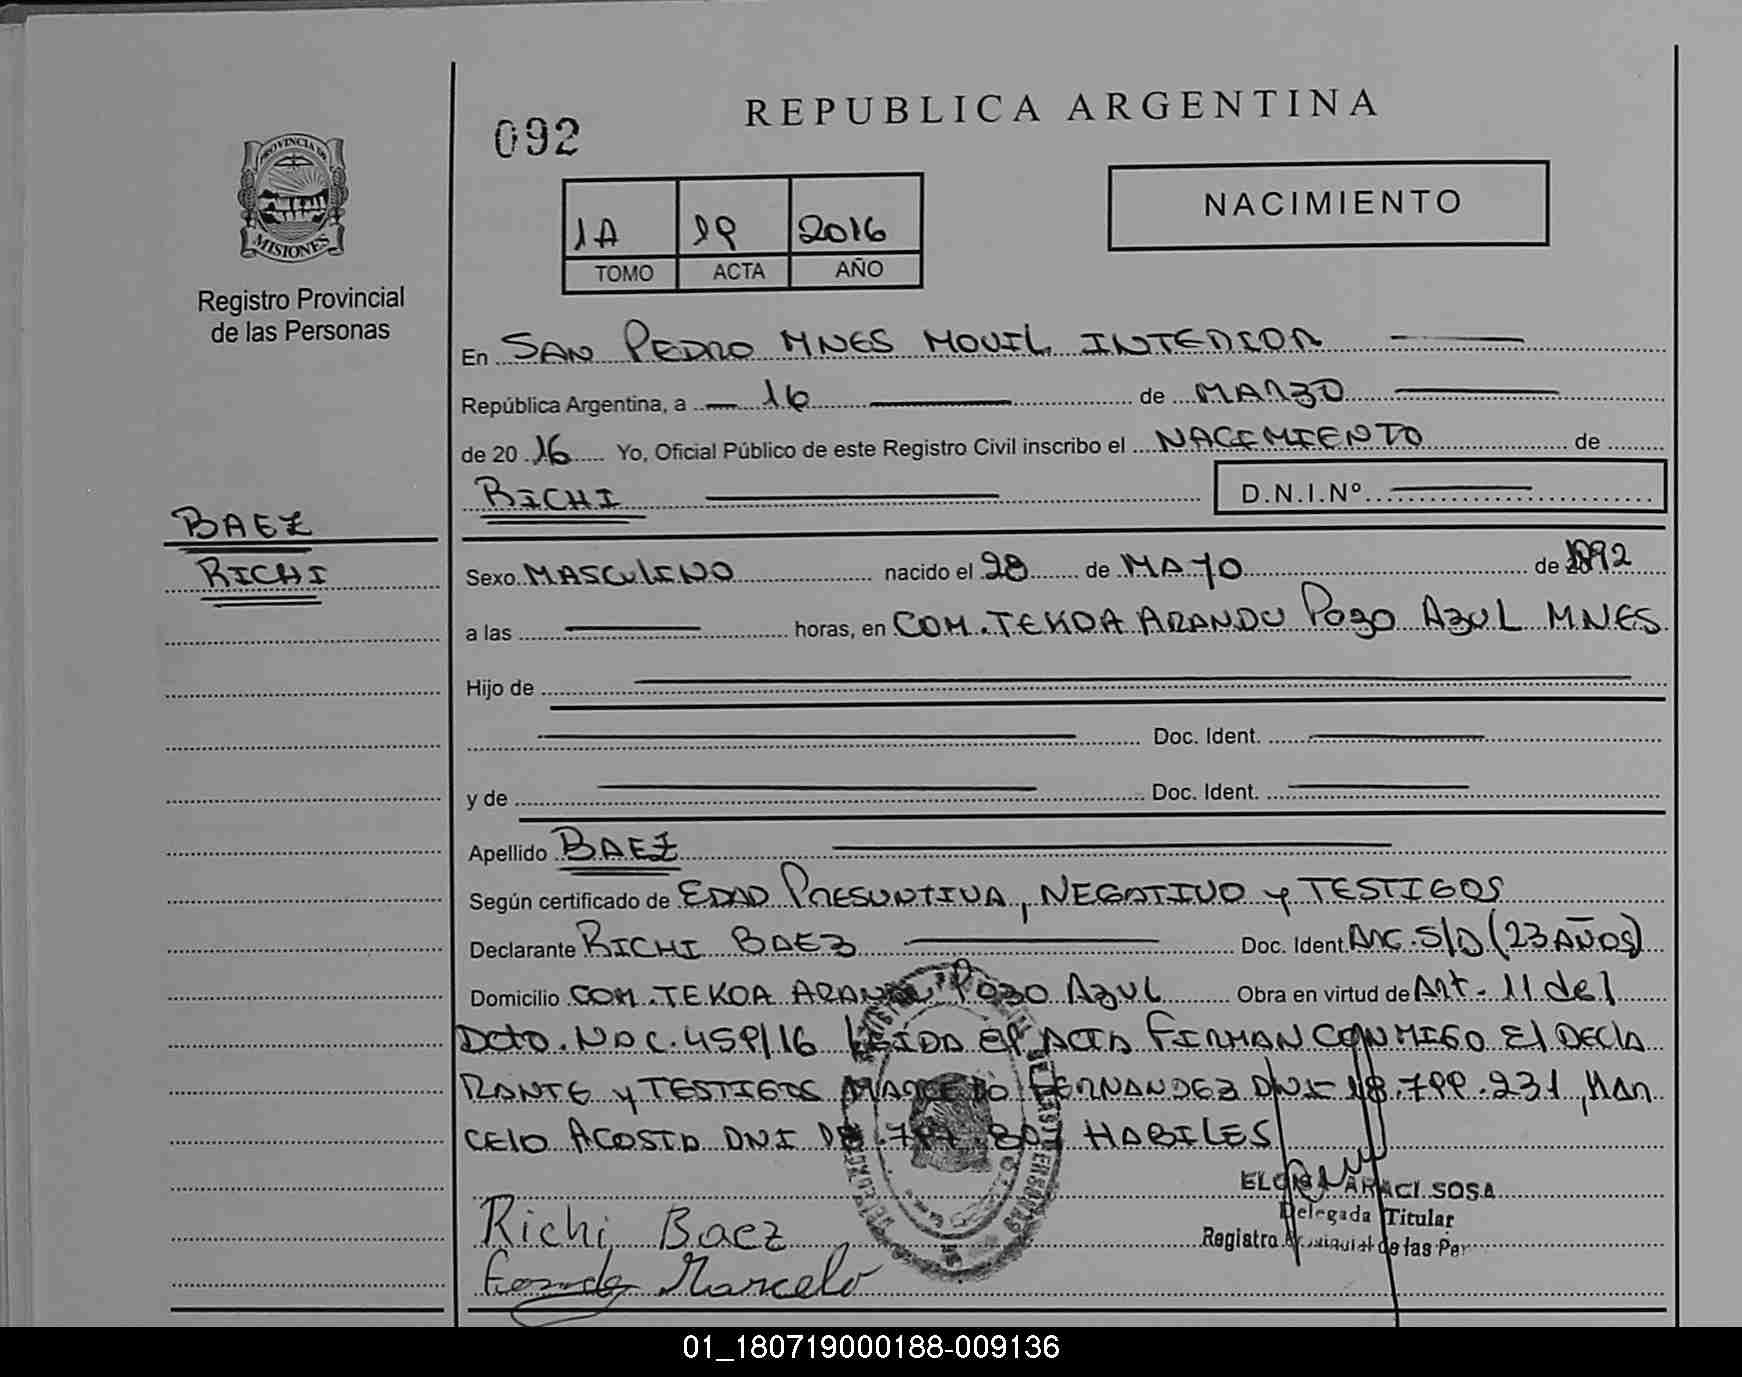 092
REPUBLICA ARGENTINA
PROVINCIA DE MISIONES
NACIMIENTO
1A 19 2016
TOMO ACTA AÑO
Registro Provincial
de las Personas
En SAN PEDRO MNES MOVIL INTERIOR
República Argentina, a 16 de MARZO
de 20 16 Yo, Oficial Público de este Registro Civil inscribo el NACIMIENTO de
RICHI D.N.I.Nº
BAEZ
RICHI
Sexo MASCULINO nacido el 28 de MAYO de 1992
a las horas, en COM. TEKOA ARANDU POZO AZUL MNES
Hijo de
Doc. Ident.
y de Doc. Ident.
Apellido BAEZ
Según certificado de EDAD PRESUNTIVA, NEGATIVO y TESTIGOS
Declarante RICHI BAEZ Doc. Ident. ARG. S/D (23 AÑOS)
Domicilio COM. TEKOA ARANDU POZO AZUL Obra en virtud de Art. 11 del
Dcto. NAC. 459/16 LEIDA el ACTA FIRMAN CONMIGO El DECLA
RANTE y TESTIGOS MARCELO FERNANDEZ DNI 18.799.231, MAR
CELO ACOSTA DNI HABILES
ELGA ARACI SOSA
Richi Baez
Delegada Titular
Registro Provincial de las Per
Marcelo
01_180719000188-009136